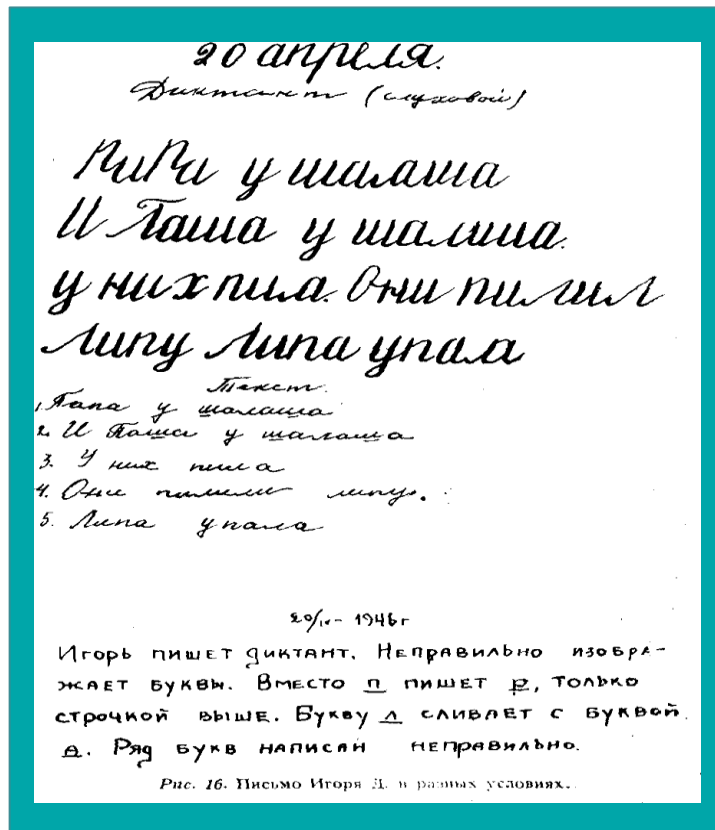 20 апреля.
Диктант (слуховой)
РиРа у шалаша
И Паша у шалша.
у них пила. Они пилил
липу липа упала
Текст.
1. Папа у шалаша
2. И Паша у шалаша
3. У них пила
4. Они пилили липу.
5. Липа упала
20/IV – 1946г
Игорь пишет диктант. Неправильно изобра-
жает буквы. Вместо п пишет р, только
строчкой выше. Букву л сливает с буквой
а. Ряд букв написан неправильно.
Рис. 16. Письмо Игоря Д. в разных условиях.